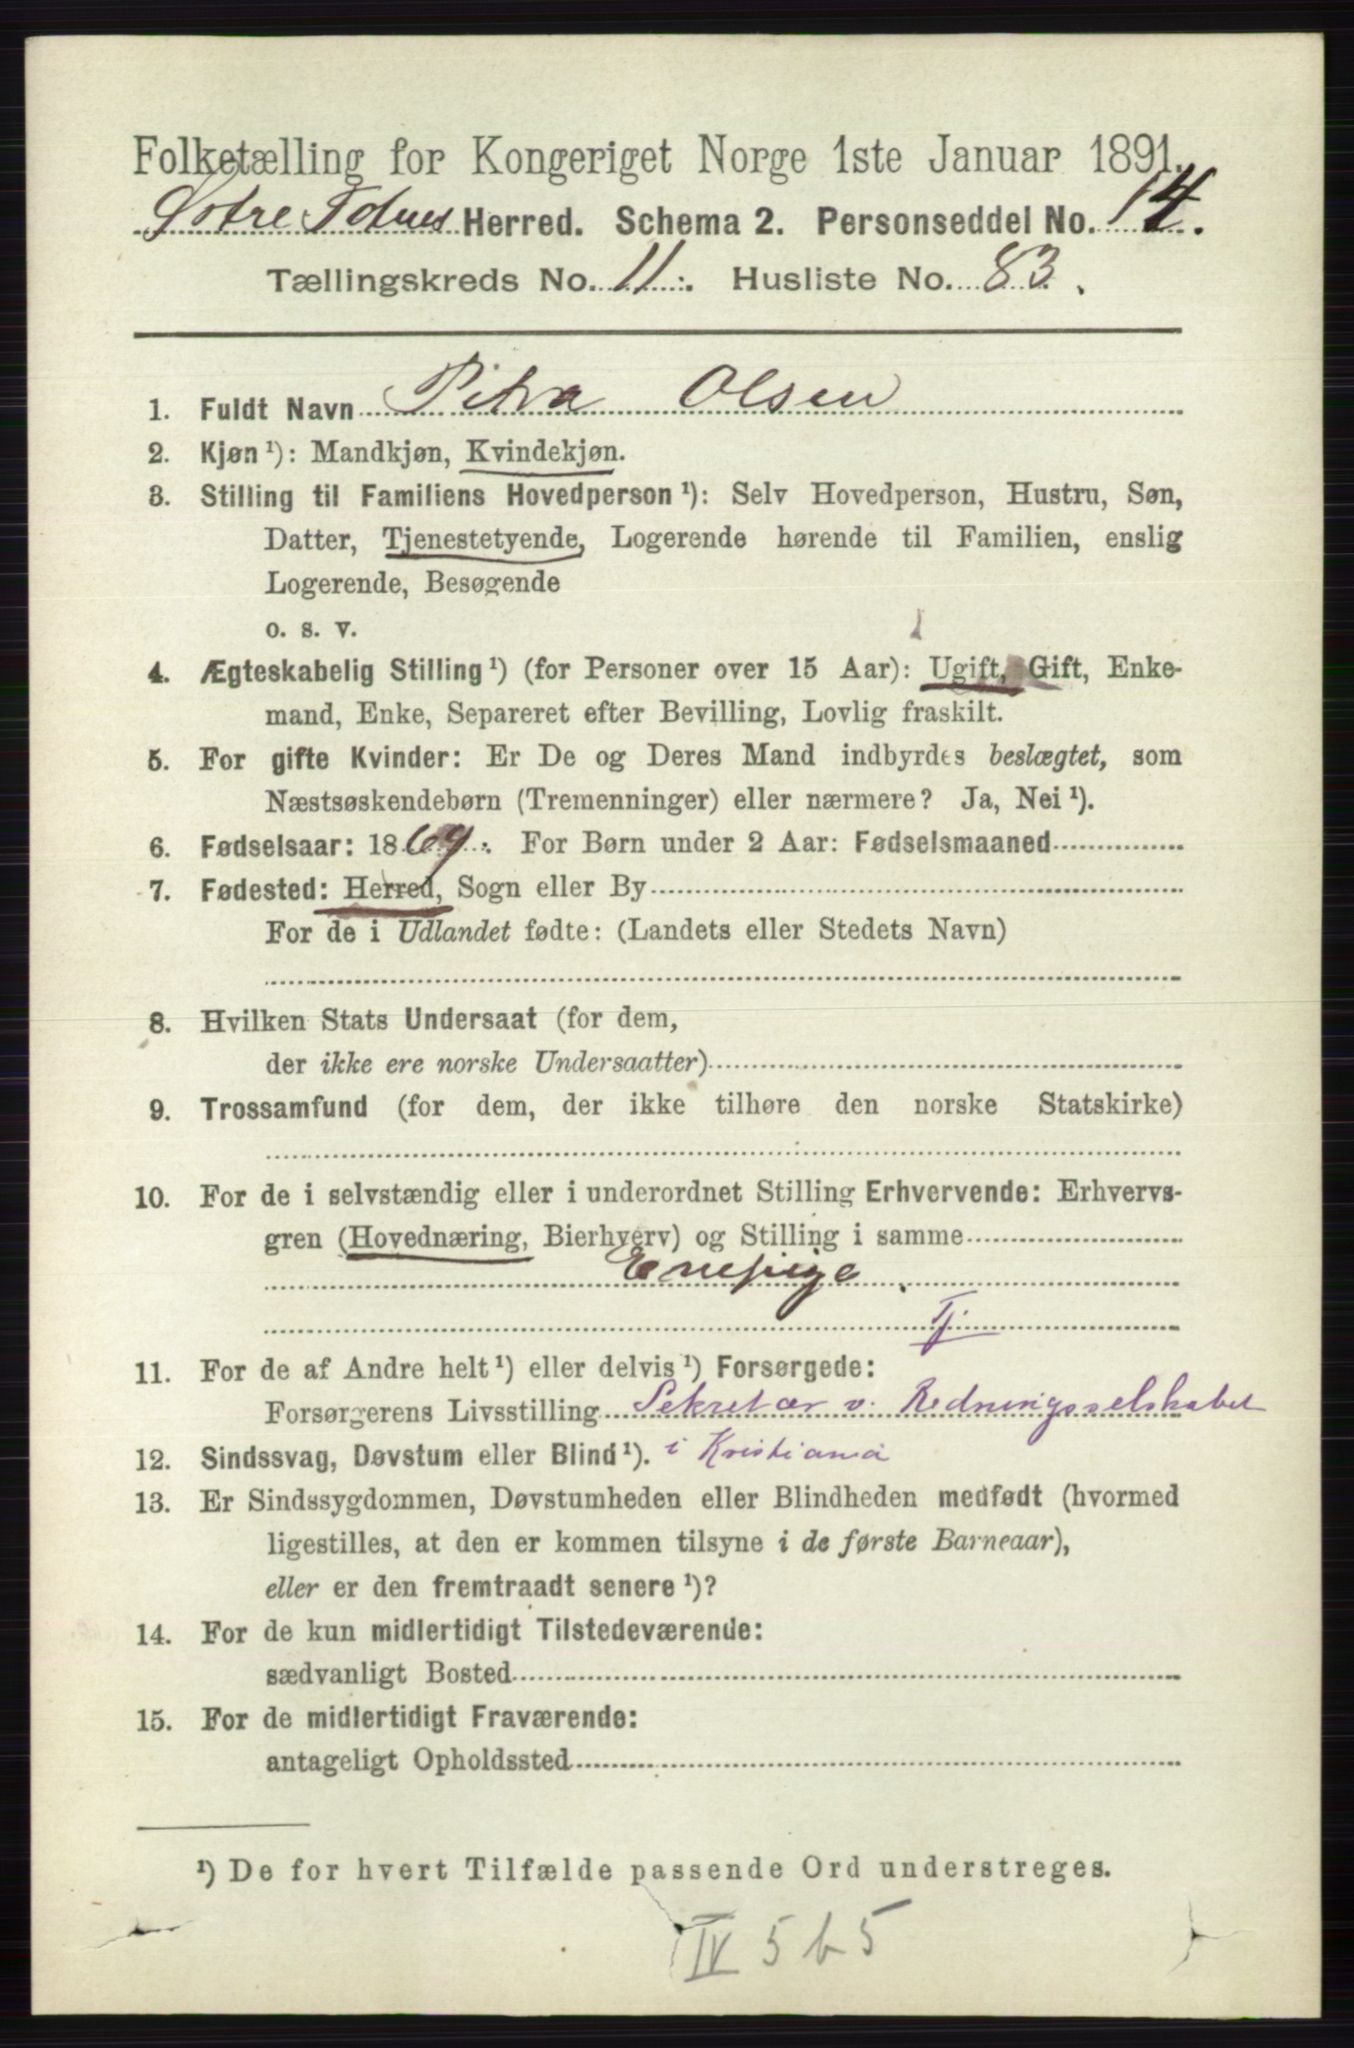 Folketælling for Kongeriget Norge 1ste Januar 1891.
Østre Toten Herred. Schema 2. Personseddel No. 14.
Tællingskreds No. 11. Husliste No. 83.
1. Fuldt Navn Petra Olsen
2. Kjøn ¹): Mandkjøn, Kvindekjøn.
3. Stilling til Familiens Hovedperson ¹): Selv Hovedperson, Hustru, Søn,
Datter, Tjenestetyende, Logerende hørende til Familien, enslig
Logerende, Besøgende
o. s. v.
4. Ægteskabelig Stilling ¹) (for Personer over 15 Aar): Ugift, Gift, Enke-
mand, Enke, Separeret efter Bevilling, Lovlig fraskilt.
5. For gifte Kvinder: Er De og Deres Mand indbyrdes beslægtet, som
Næstsøskendebørn (Tremenninger) eller nærmere? Ja, Nei ¹).
6. Fødselsaar: 1869. For Børn under 2 Aar: Fødselsmaaned
7. Fødested: Herred, Sogn eller By
For de i Udlandet fødte: (Landets eller Stedets Navn)
8. Hvilken Stats Undersaat (for dem,
der ikke ere norske Undersaatter)
9. Trossamfund (for dem, der ikke tilhøre den norske Statskirke)
10. For de i selvstændig eller i underordnet Stilling Erhvervende: Erhvervs-
gren (Hovednæring, Bierhverv) og Stilling i samme
Enepige.
Tj
11. For de af Andre helt ¹) eller delvis ¹) Forsørgede:
Forsørgerens Livsstilling Sekretær v. Redningsselskabet
12. Sindssvag, Døvstum eller Blind ¹). i Kristiania
13. Er Sindssygdommen, Døvstumheden eller Blindheden medfødt (hvormed
ligestilles, at den er kommen tilsyne i de første Barneaar),
eller er den fremtraadt senere ¹)?
14. For de kun midlertidigt Tilstedeværende:
sædvanligt Bosted
15. For de midlertidigt Fraværende:
antageligt Opholdssted
¹) De for hvert Tilfælde passende Ord understreges.
IV 5 b 5